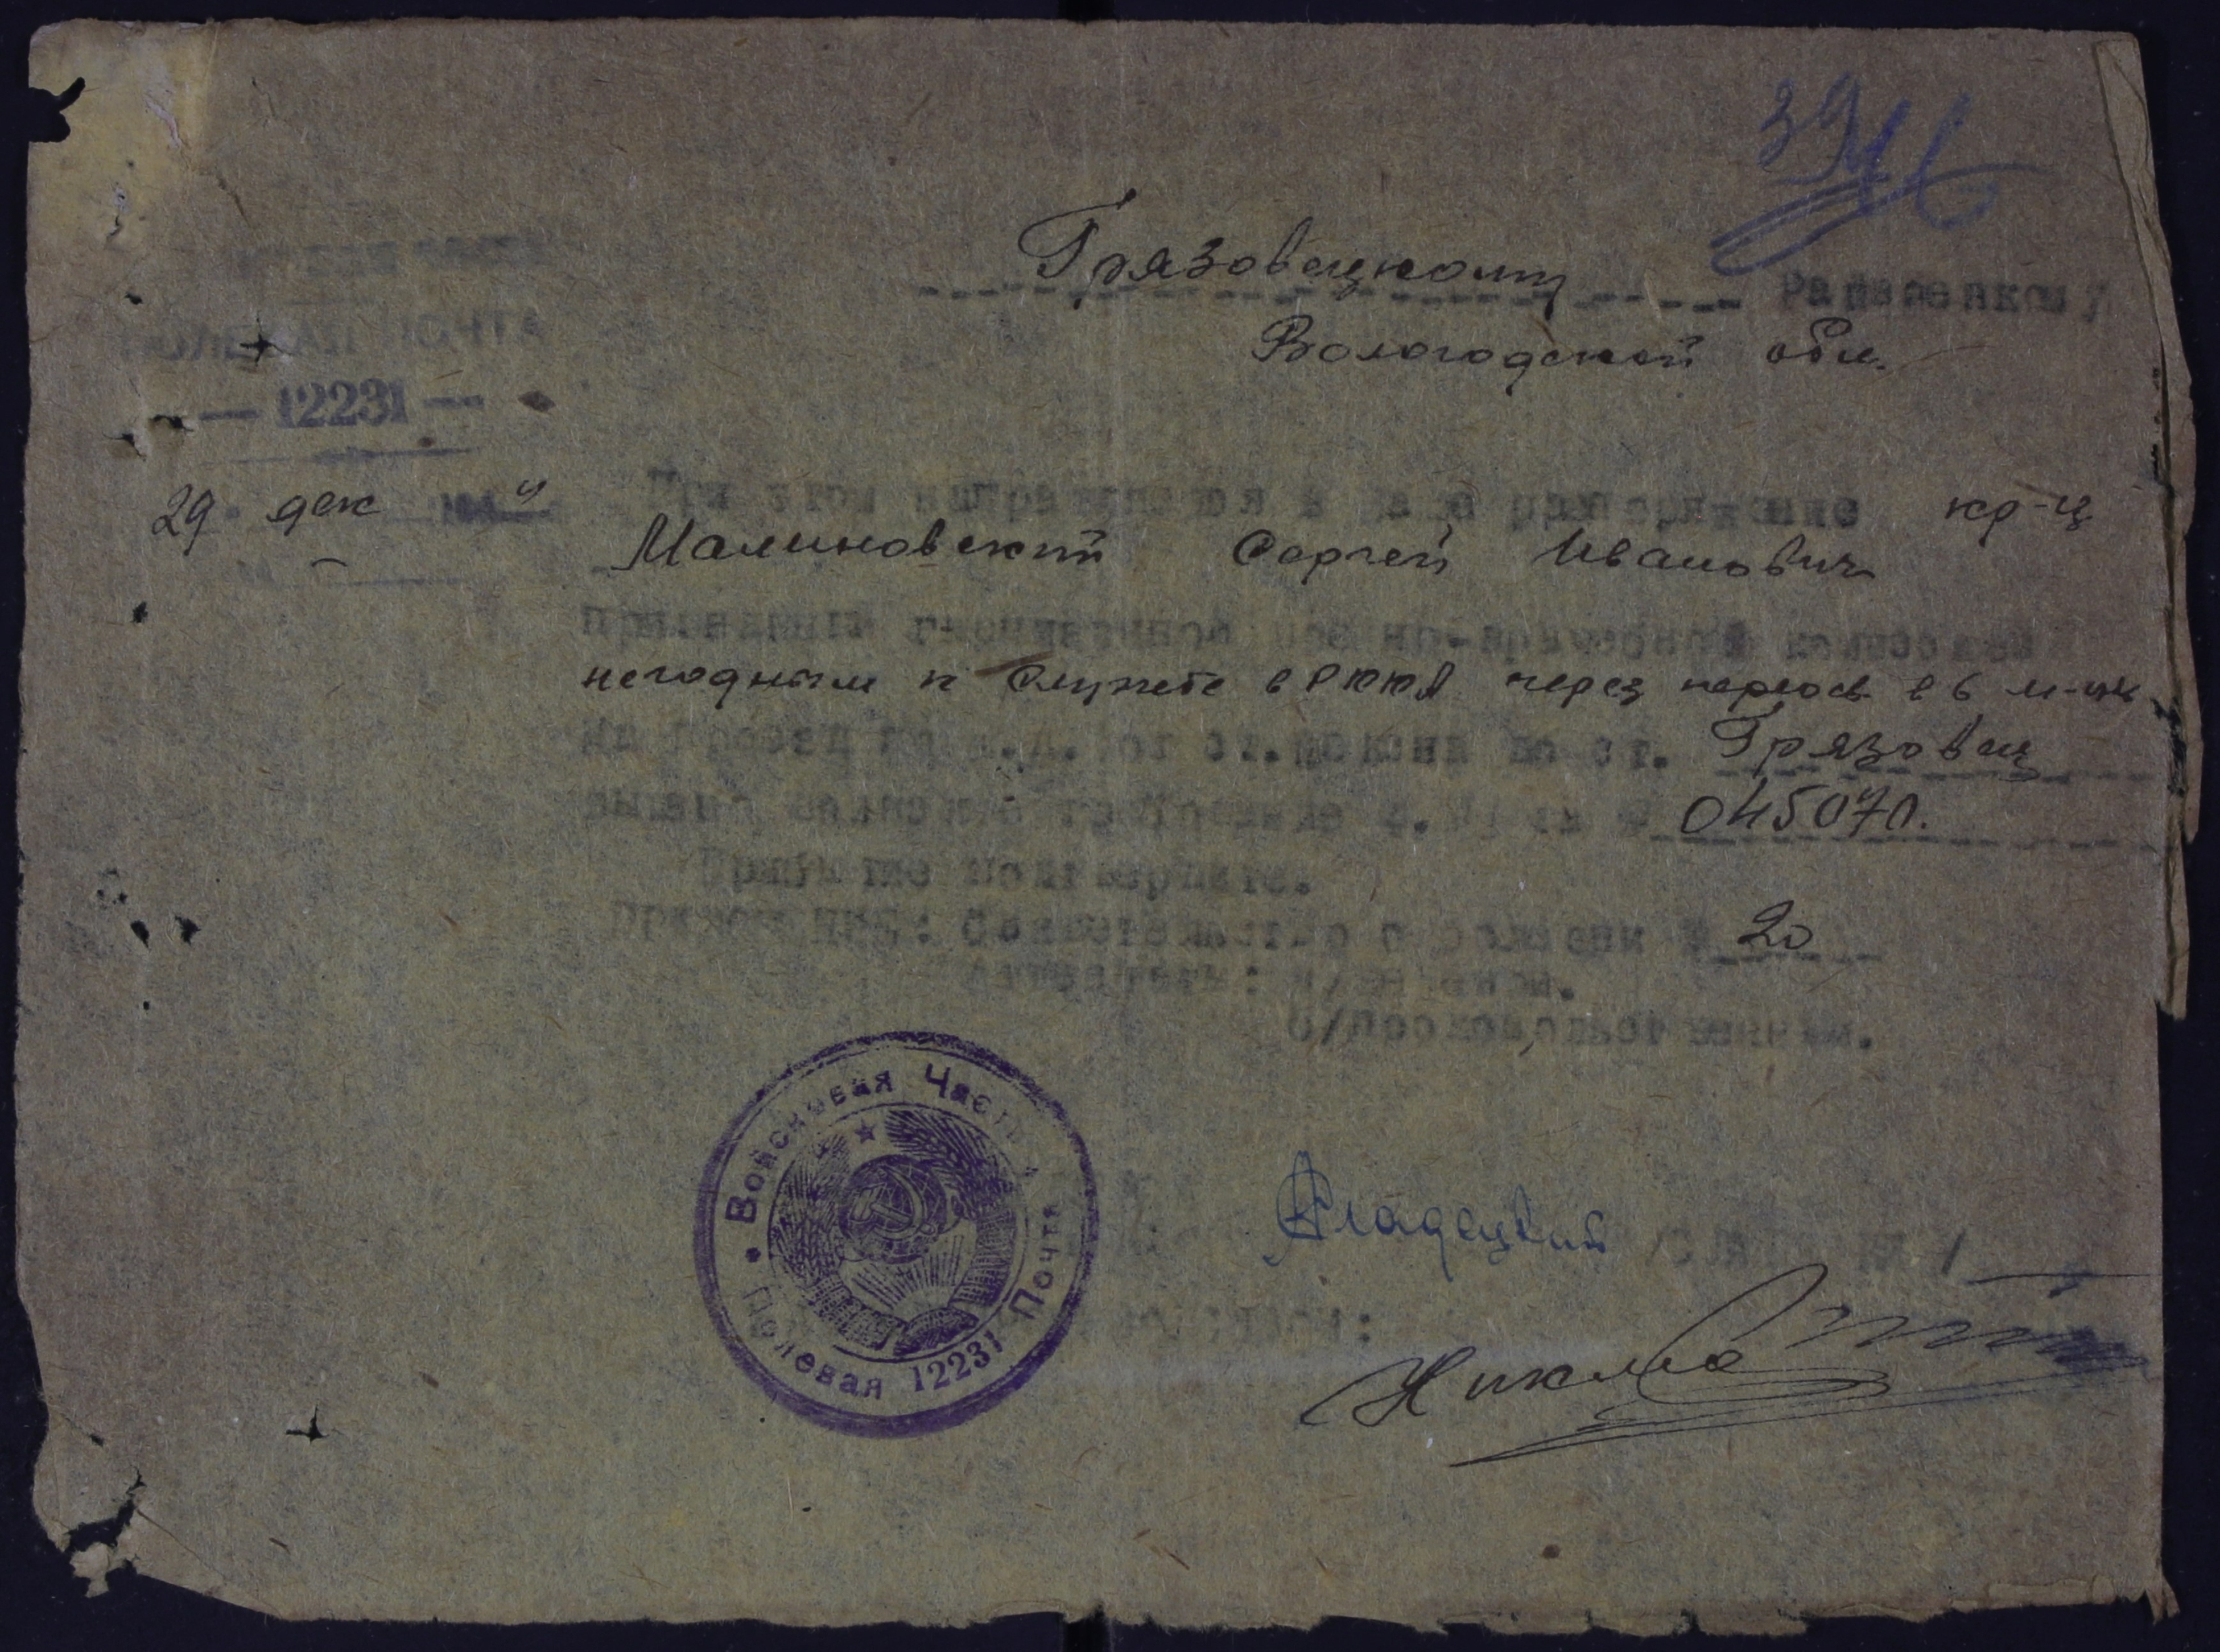 39
Грязовецкому Райвоенкому
Вологодской обл.
ВОЙСКОВАЯ ЧАСТЬ
ПОЛЕВАЯ ПОЧТА
— 12231 —
29 дек 194 4
При этом направляется в Ваше распоряжение кр-ц
Малиновский Сергей Иванович
признанный гарнизонной военно-врачебной комиссией
негодным к службе в РККА через переосв. в 6 м-цев
На проезд по ж.д. от ст. до ст. Грязовец
выдано воинское требование ф. № 1 за № 045070.
Прибытие подтвердите.
Приложение: Свидетельство о болезни № 20
Аттестаты: и/вещевым.
б/продовольственным.
Войсковая Часть
Полевая Почта 12231